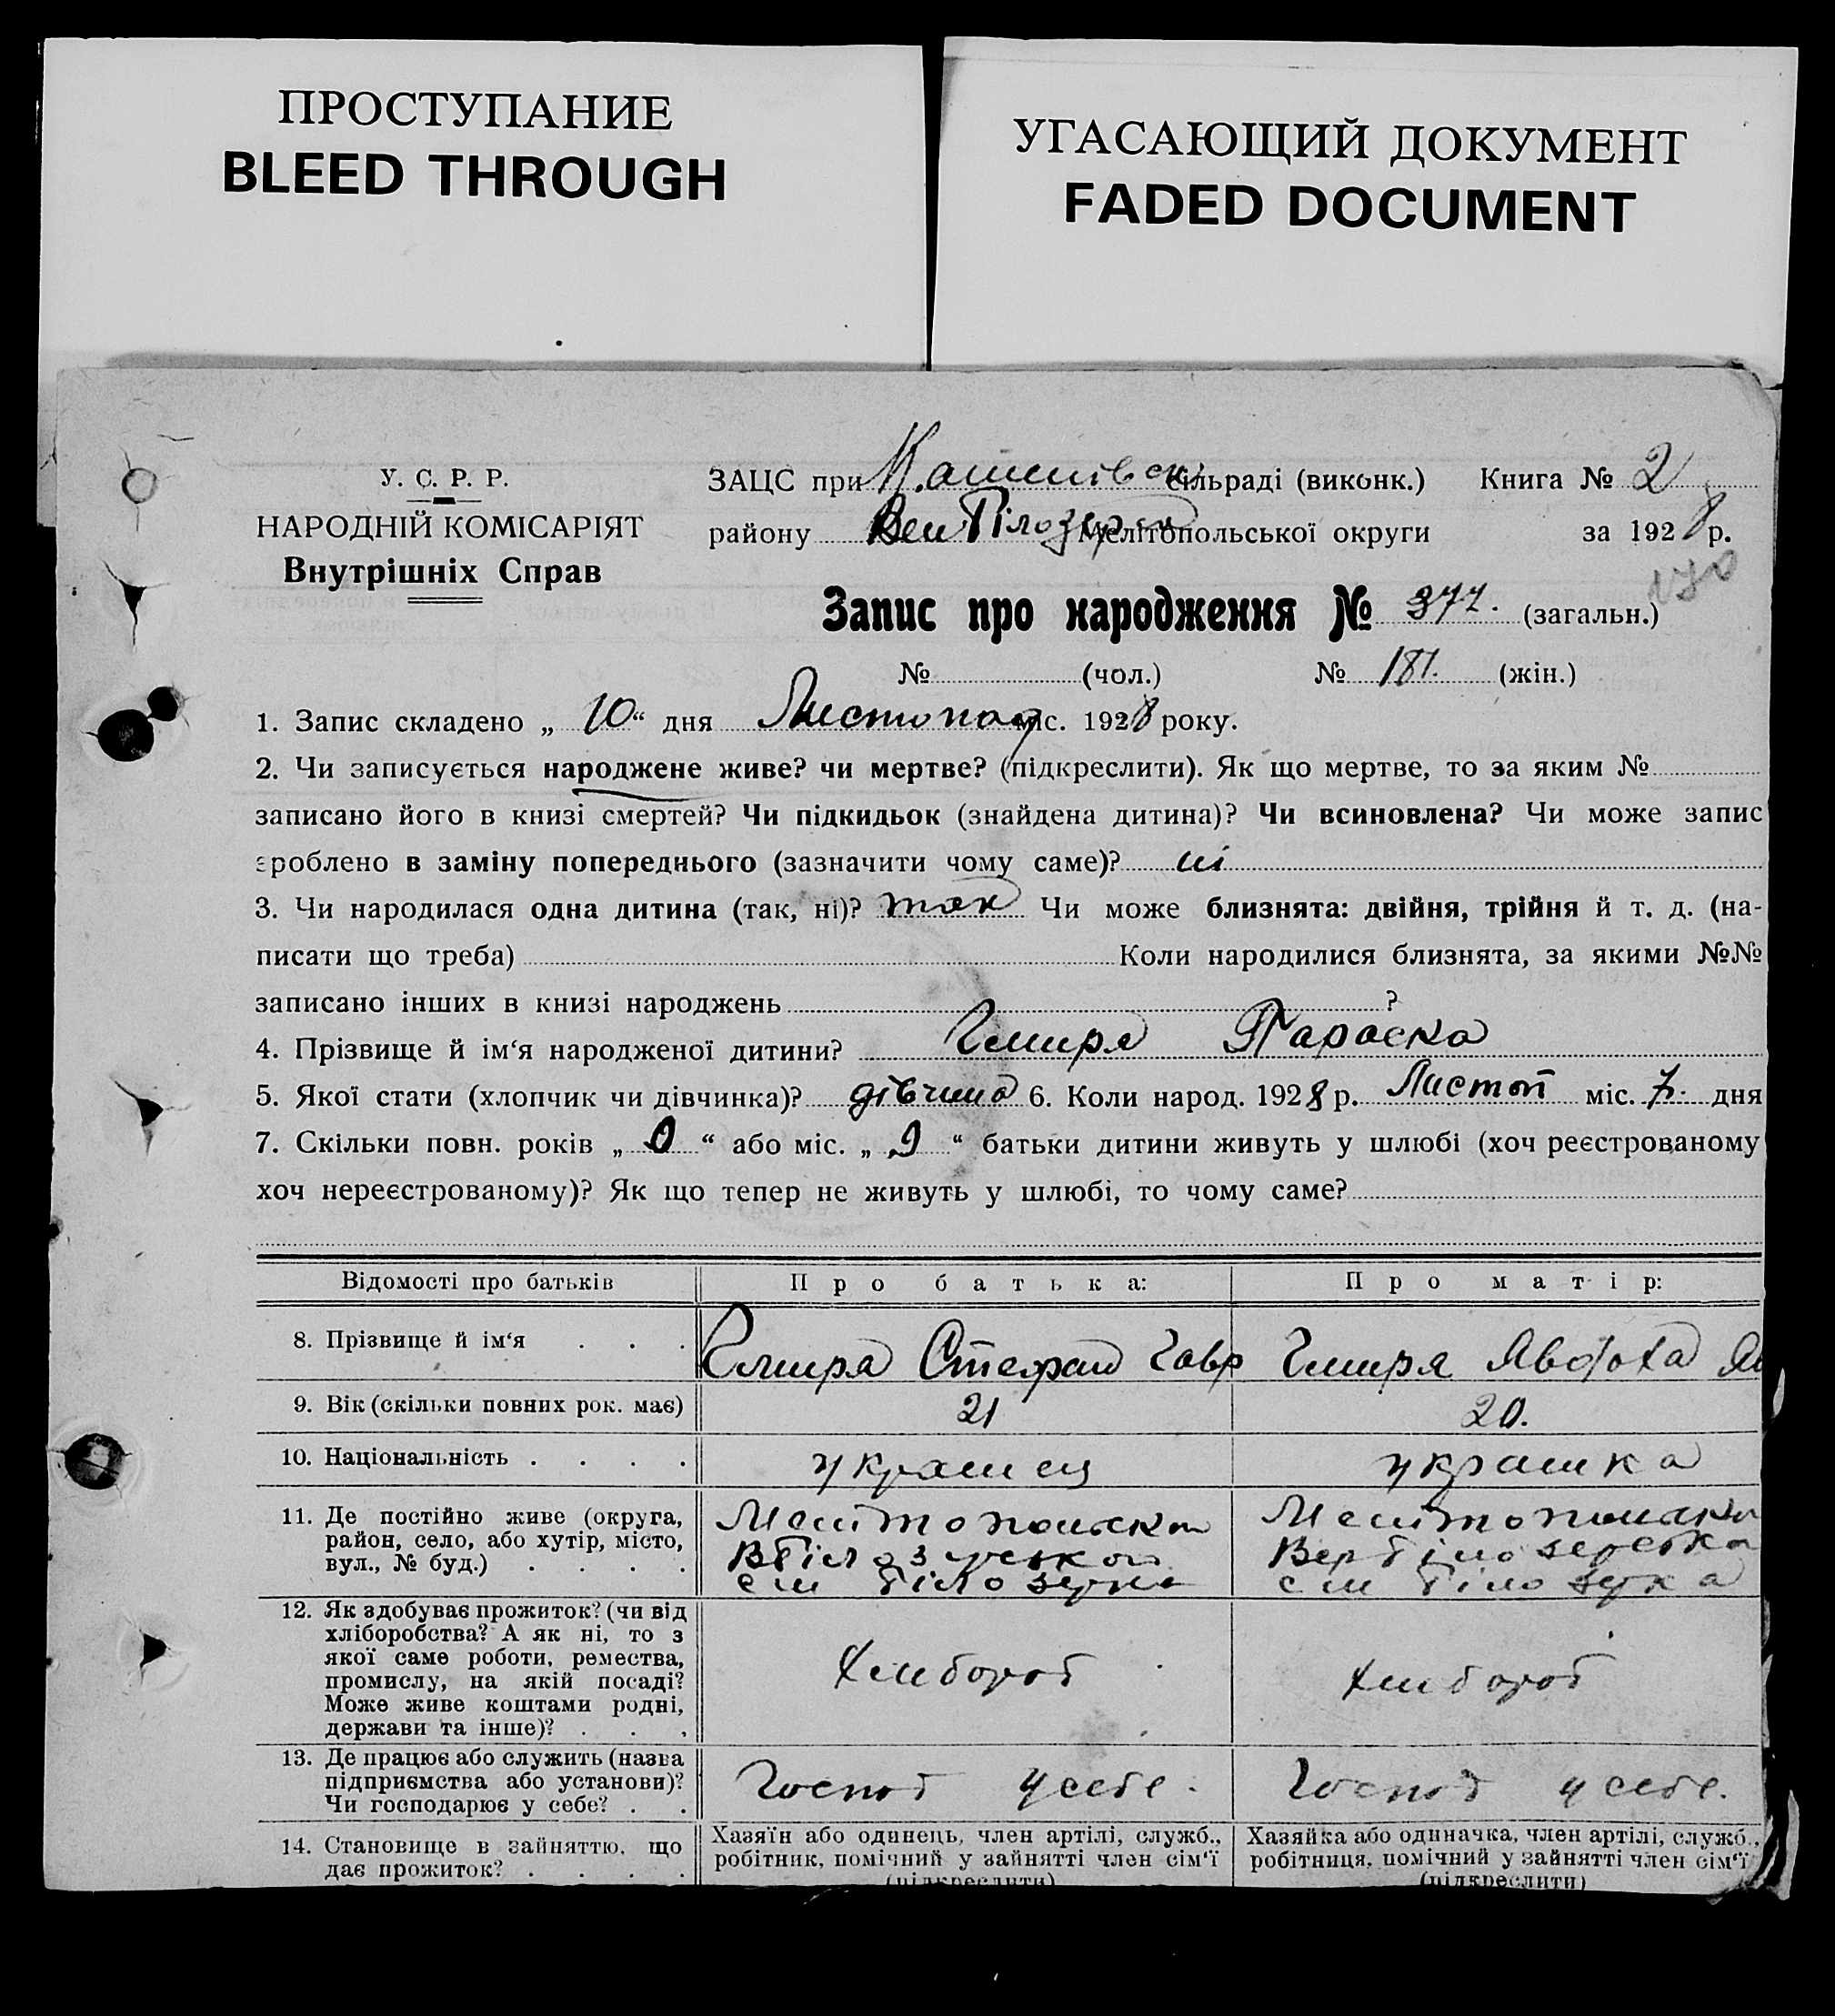 ПРОСТУПАНИЕ
BLEED THROUGH
УГАСАЮЩИЙ ДОКУМЕНТ
FADED DOCUMENT
У. С. Р. Р.
НАРОДНІЙ КОМІСАРІЯТ
Внутрішніх Справ
ЗАЦС при сільраді (виконк.) Книга № 2
району Мелітопольської округи за 1928 р.
Запис про народження № 377. (загальн.)
№ (чол.) № 181. (жін.)
1. Запис складено „ 10 “ дня Листопад міс. 1928 року.
2. Чи записується народжене живе? чи мертве? (підкреслити). Як що мертве, то за яким №
записано його в книзі смертей? Чи підкидьок (знайдена дитина)? Чи всиновлена? Чи може запис
зроблено в заміну попереднього (зазначити чому саме)? ні
3. Чи народилася одна дитина (так, ні)? так Чи може близнята: двійня, трійня й т. д. (на-
писати що треба) Коли народилися близнята, за якими №№
записано інших в книзі народжень ?
4. Прізвище й ім‘я народженої дитини? Гмиря Параска
5. Якої стати (хлопчик чи дівчинка)? дівчина 6. Коли народ. 1928 р. Листоп міс. 7. дня
7. Скільки повн. років „ 0 “ або міс. „ 9 “ батьки дитини живуть у шлюбі (хоч реєстрованому
хоч нереєстрованому)? Як що тепер не живуть у шлюбі, то чому саме?
Відомості про батьків Про батька: Про матір:
8. Прізвище й ім‘я . . . Гмиря Стефан Гавр Гмиря Явдоха
9. Вік (скільки повних рок. має) 21 20.
10. Національність . . . . украинец украинка
11. Де постійно живе (округа,
район, село, або хутір, місто,
вул., № буд.) . . . .
Мелитопольскои
ВБілозирскои
сил Білозирка
Мелитопольскои
сил Білозирка
12. Як здобуває прожиток? (чи від
хліборобства? А як ні, то з
якої саме роботи, ремества,
промислу, на якій посаді?
Може живе коштами родні,
держави та інше)? . . .
Хлибороб
хлибороб
13. Де працює або служить (назва
підприємства або установи)?
Чи господарює у себе? . .
Господ у себе.
Господ у себе.
14. Становище в зайняттю, що
дає прожиток? . . . .
Хазяїн або одинець, член артілі, служб.,
робітник, помічний у зайнятті член сім‘ї
(підкреслити)
Хазяйка або одиначка, член артілі, служб.,
робітниця, помічний у зайнятті член сім‘ї
(підкреслити)